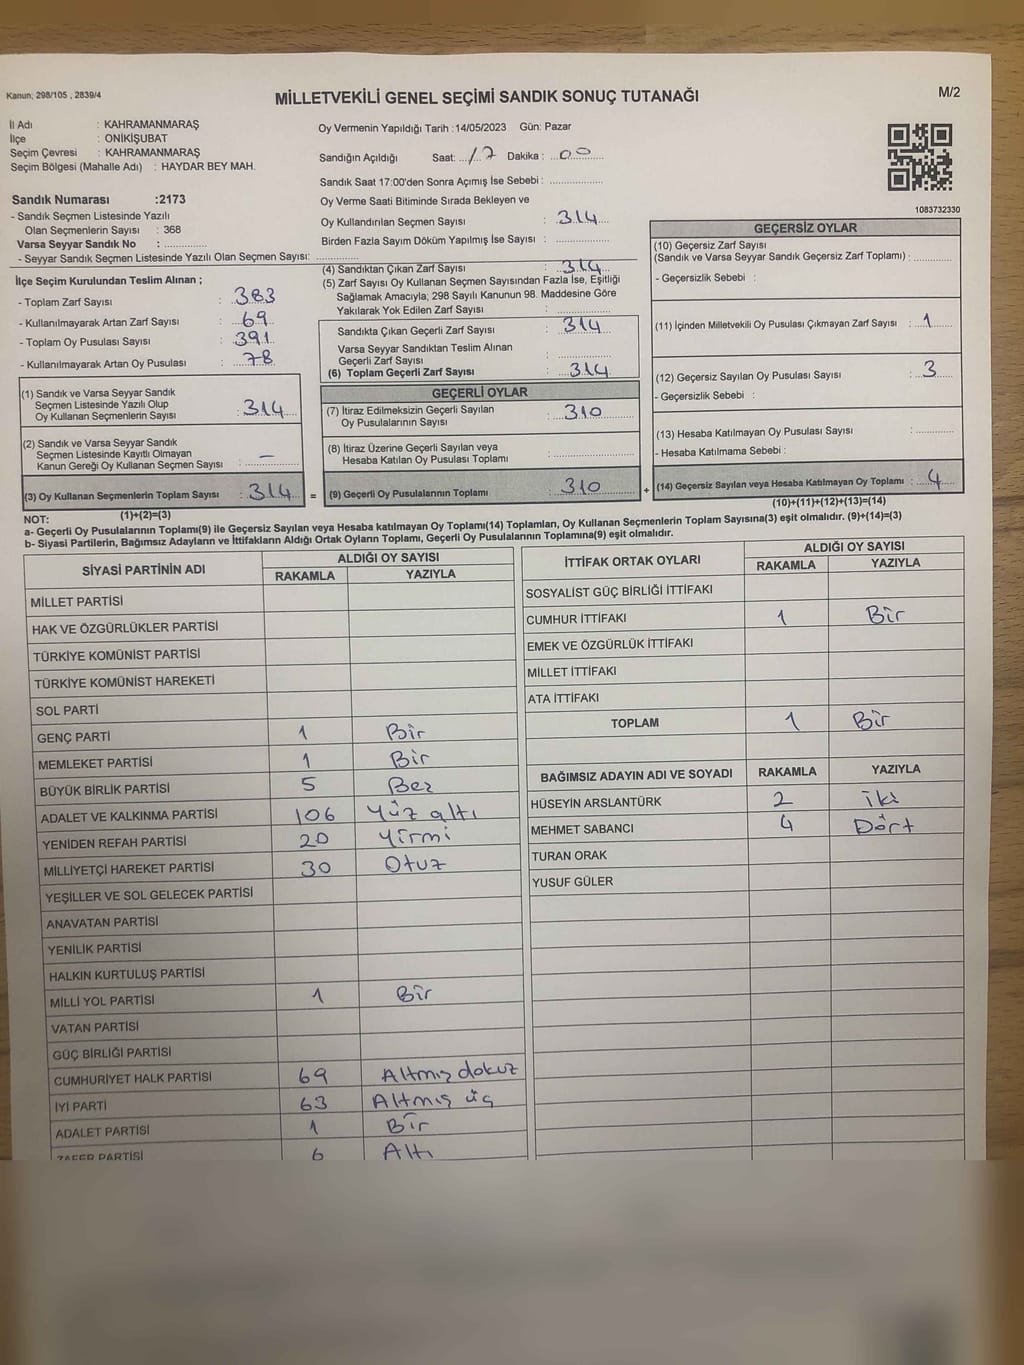 Kanun; 298/105 , 2839/4
MİLLETVEKİLİ GENEL SEÇİMİ SANDIK SONUÇ TUTANAĞI
M/2
İl Adı : KAHRAMANMARAŞ
İlçe : ONİKİŞUBAT
Seçim Çevresi : KAHRAMANMARAŞ
Seçim Bölgesi (Mahalle Adı) : HAYDAR BEY MAH.
Sandık Numarası :2173
- Sandık Seçmen Listesinde Yazılı
Olan Seçmenlerin Sayısı : 368
Varsa Seyyar Sandık No :
- Seyyar Sandık Seçmen Listesinde Yazılı Olan Seçmen Sayısı:
Oy Vermenin Yapıldığı Tarih :14/05/2023 Gün: Pazar
Sandığın Açıldığı Saat: 17 Dakika : 00
Sandık Saat 17:00'den Sonra Açımış İse Sebebi :
Oy Verme Saati Bitiminde Sırada Bekleyen ve
Oy Kullandırılan Seçmen Sayısı : 314
Birden Fazla Sayım Döküm Yapılmış İse Sayısı :
1083732330
İlçe Seçim Kurulundan Teslim Alınan ;
- Toplam Zarf Sayısı : 383
- Kullanılmayarak Artan Zarf Sayısı : 69
- Toplam Oy Pusulası Sayısı : 391
- Kullanılmayarak Artan Oy Pusulası : 78
(1) Sandık ve Varsa Seyyar Sandık
Seçmen Listesinde Yazılı Olup
Oy Kullanan Seçmenlerin Sayısı : 314
(2) Sandık ve Varsa Seyyar Sandık
Seçmen Listesinde Kayıtlı Olmayan
Kanun Gereği Oy Kullanan Seçmen Sayısı : –
(3) Oy Kullanan Seçmenlerin Toplam Sayısı : 314 =
(1)+(2)=(3)
(4) Sandıktan Çıkan Zarf Sayısı : 314
(5) Zarf Sayısı Oy Kullanan Seçmen Sayısından Fazla İse, Eşitliği
Sağlamak Amacıyla; 298 Sayılı Kanunun 98. Maddesine Göre
Yakılarak Yok Edilen Zarf Sayısı :
Sandıkta Çıkan Geçerli Zarf Sayısı : 314
Varsa Seyyar Sandıktan Teslim Alınan
Geçerli Zarf Sayısı :
(6) Toplam Geçerli Zarf Sayısı : 314
GEÇERLİ OYLAR
(7) İtiraz Edilmeksizin Geçerli Sayılan
Oy Pusulalarının Sayısı : 310
(8) İtiraz Üzerine Geçerli Sayılan veya
Hesaba Katılan Oy Pusulası Toplamı :
(9) Geçerli Oy Pusulalarının Toplamı : 310 +
GEÇERSİZ OYLAR
(10) Geçersiz Zarf Sayısı
(Sandık ve Varsa Seyyar Sandık Geçersiz Zarf Toplamı) :
- Geçersizlik Sebebi :
(11) İçinden Milletvekili Oy Pusulası Çıkmayan Zarf Sayısı : 1
(12) Geçersiz Sayılan Oy Pusulası Sayısı : 3
- Geçersizlik Sebebi :
(13) Hesaba Katılmayan Oy Pusulası Sayısı :
- Hesaba Katılmama Sebebi :
(14) Geçersiz Sayılan veya Hesaba Katılmayan Oy Toplamı : 4
(10)+(11)+(12)+(13)=(14)
NOT:
a- Geçerli Oy Pusulalarının Toplamı(9) ile Geçersiz Sayılan veya Hesaba katılmayan Oy Toplamı(14) Toplamları, Oy Kullanan Seçmenlerin Toplam Sayısına(3) eşit olmalıdır. (9)+(14)=(3)
b- Siyasi Partilerin, Bağımsız Adayların ve İttifakların Aldığı Ortak Oyların Toplamı, Geçerli Oy Pusulalarının Toplamına(9) eşit olmalıdır.
SİYASİ PARTİNİN ADI ALDIĞI OY SAYISI
RAKAMLA YAZIYLA
MİLLET PARTİSİ
HAK VE ÖZGÜRLÜKLER PARTİSİ
TÜRKİYE KOMÜNİST PARTİSİ
TÜRKİYE KOMÜNİST HAREKETİ
SOL PARTİ
GENÇ PARTİ 1 Bir
MEMLEKET PARTİSİ 1 Bir
BÜYÜK BİRLİK PARTİSİ 5 Beş
ADALET VE KALKINMA PARTİSİ 106 Yüz altı
YENİDEN REFAH PARTİSİ 20 Yirmi
MİLLİYETÇİ HAREKET PARTİSİ 30 Otuz
YEŞİLLER VE SOL GELECEK PARTİSİ
ANAVATAN PARTİSİ
YENİLİK PARTİSİ
HALKIN KURTULUŞ PARTİSİ
MİLLİ YOL PARTİSİ 1 Bir
VATAN PARTİSİ
GÜÇ BİRLİĞİ PARTİSİ
CUMHURİYET HALK PARTİSİ 69 Altmış dokuz
İYİ PARTİ 63 Altmış üç
ADALET PARTİSİ 1 Bir
ZAFER PARTİSİ 6 Altı
İTTİFAK ORTAK OYLARI ALDIĞI OY SAYISI
RAKAMLA YAZIYLA
SOSYALİST GÜÇ BİRLİĞİ İTTİFAKI
CUMHUR İTTİFAKI 1 Bir
EMEK VE ÖZGÜRLÜK İTTİFAKI
MİLLET İTTİFAKI
ATA İTTİFAKI
TOPLAM 1 Bir
BAĞIMSIZ ADAYIN ADI VE SOYADI RAKAMLA YAZIYLA
HÜSEYİN ARSLANTÜRK 2 İki
MEHMET SABANCI 4 Dört
TURAN ORAK
YUSUF GÜLER